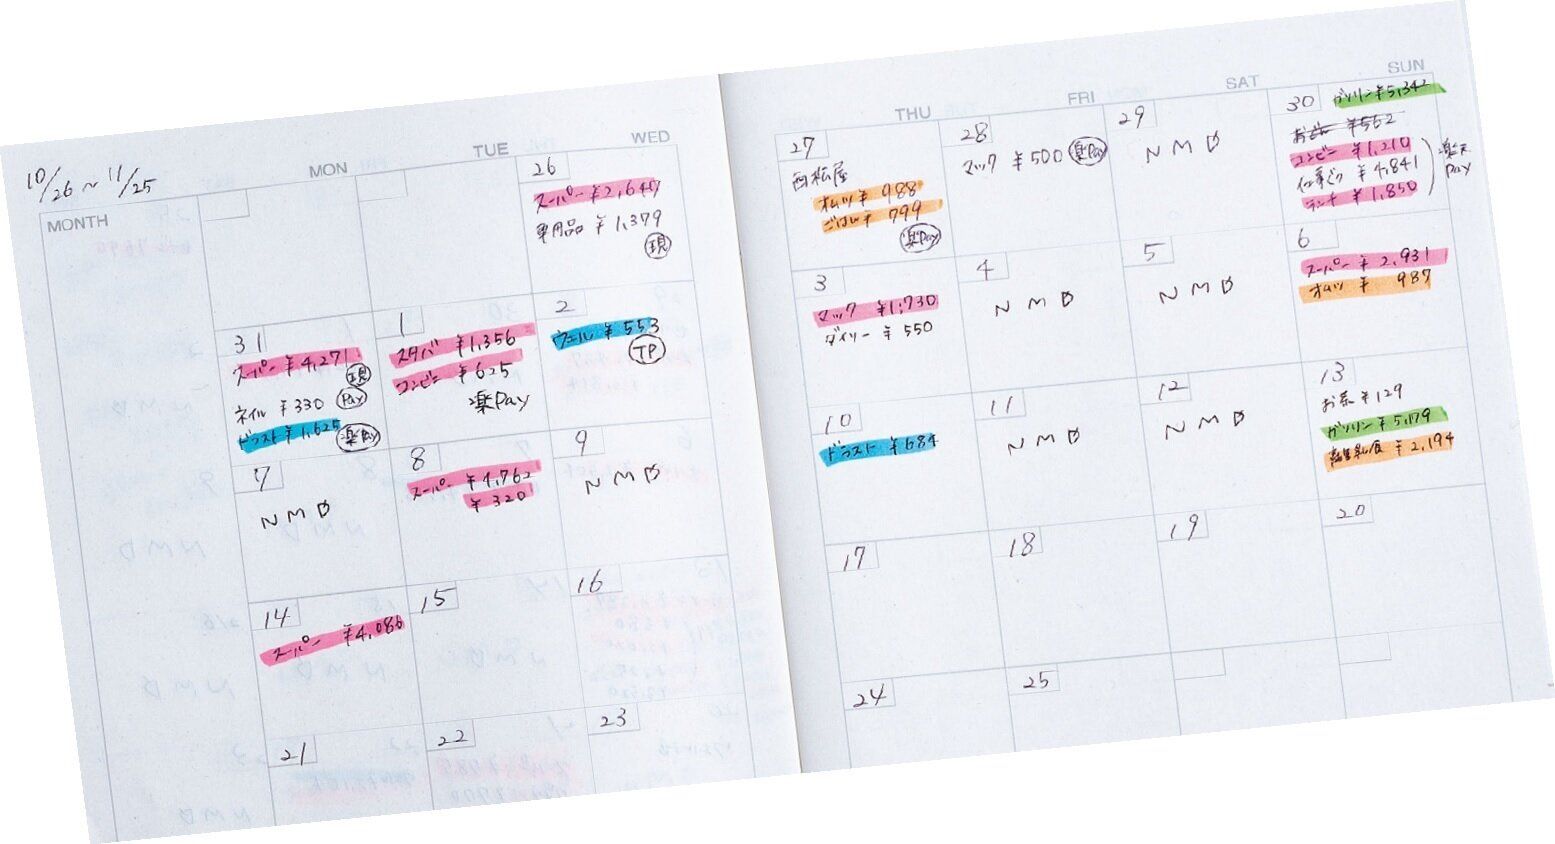 10/26~11/25
MONTH
MON
TUE
WED
THU
FRI
SAT
SUN
26
スーパー ¥2,640
専用品 ¥1,379
現
27
西松屋
オムツ ¥988
ごはん ¥799
楽Pay
28
マック ¥500 楽Pay
29
NMD
30
ガソリン ¥5,342
おどん ¥562
コンビニ ¥1,210
仕事どう ¥4,841
ランチ ¥1,850
楽天
Pay
31
スーパー ¥4,271
現
ネイル ¥330 Pay
ドラスト ¥1,625 楽Pay
1
スタバ ¥1,356
コンビニ ¥625
楽Pay
2
ウエル ¥553
TP
3
マック ¥1,730
ダイソー ¥550
4
NMD
5
NMD
6
スーパー ¥2,931
オムツ ¥987
7
NMD
8
スーパー ¥4,762
¥320
9
NMD
10
ドラスト ¥684
11
NMD
12
NMD
13
お茶 ¥129
ガソリン ¥5,179
離乳食 ¥2,194
14
スーパー ¥4,086
15
16
17
18
19
20
21
22
23
24
25